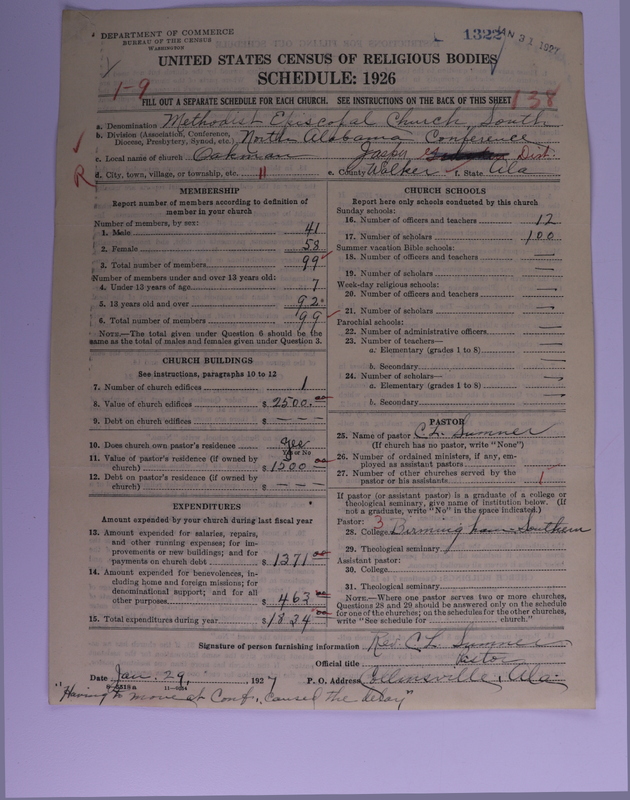 DEPARTMENT OF COMMERCE
BUREAU OF THE CENSUS
WASHINGTON
1322
JAN 31 1927
UNITED STATES CENSUS OF RELIGIOUS BODIES
SCHEDULE: 1926
1-9
FILL OUT A SEPARATE SCHEDULE FOR EACH CHURCH. SEE INSTRUCTIONS ON THE BACK OF THIS SHEET
138
a. Denomination Methodist Episcopal Church, South
b. Division (Association, Conference, Diocese, Presbytery, Synod, etc.) North Alabama Conference
c. Local name of church Oakman Jasper Dist.
R d. City, town, village, or township, etc. " e. County Walker f. State Ala
MEMBERSHIP
Report number of members according to definition of member in your church
Number of members, by sex:
1. Male 41
2. Female 58
3. Total number of members 99
Number of members under and over 13 years old:
4. Under 13 years of age 7
5. 13 years old and over 92
6. Total number of members 99
NOTE.—The total given under Question 6 should be the same as the total of males and females given under Question 3.
CHURCH BUILDINGS
See instructions, paragraphs 10 to 12
7. Number of church edifices 1
8. Value of church edifices $ 2500.00
9. Debt on church edifices $ — — —
10. Does church own pastor's residence Yes
Yes or No
11. Value of pastor's residence (if owned by church) $ 1500 00
12. Debt on pastor's residence (if owned by church) $ — — —
EXPENDITURES
Amount expended by your church during last fiscal year
13. Amount expended for salaries, repairs, and other running expenses; for improvements or new buildings; and for payments on church debt $ 1371 00
14. Amount expended for benevolences, including home and foreign missions; for denominational support; and for all other purposes $ 463 00
15. Total expenditures during year $ 1834 00
CHURCH SCHOOLS
Report here only schools conducted by this church
Sunday schools:
16. Number of officers and teachers 12
17. Number of scholars 100
Summer vacation Bible schools:
18. Number of officers and teachers —
19. Number of scholars —
Week-day religious schools:
20. Number of officers and teachers —
21. Number of scholars —
Parochial schools:
22. Number of administrative officers —
23. Number of teachers—
a. Elementary (grades 1 to 8) —
b. Secondary —
24. Number of scholars—
a. Elementary (grades 1 to 8) —
b. Secondary —
PASTOR
25. Name of pastor C. L. Sumner
(If church has no pastor, write "None")
26. Number of ordained ministers, if any, employed as assistant pastors
27. Number of other churches served by the pastor or his assistants 1
If pastor (or assistant pastor) is a graduate of a college or theological seminary, give name of institution below. (If not a graduate, write "No" in the space indicated.)
Pastor: 3
28. College Birmingham-Southern
29. Theological seminary
Assistant pastor:
30. College
31. Theological seminary
NOTE.—Where one pastor serves two or more churches, Questions 28 and 29 should be answered only on the schedule for one of the churches; on the schedules for the other churches, write "See schedule for church."
Signature of person furnishing information Rev. C L Sumner
Official title Pastor
Date Jan. 29, 1927 P. O. Address Collinsville, Ala.
8-5518a 11-9284
"Having to move at Conf., caused the delay"